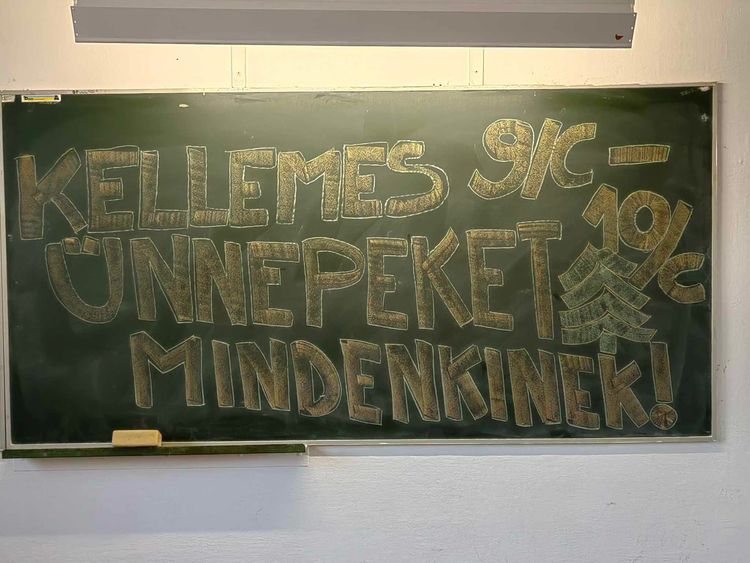 KELLEMES 9/C -
ÜNNEPEKET 10/C
MINDENKINEK!